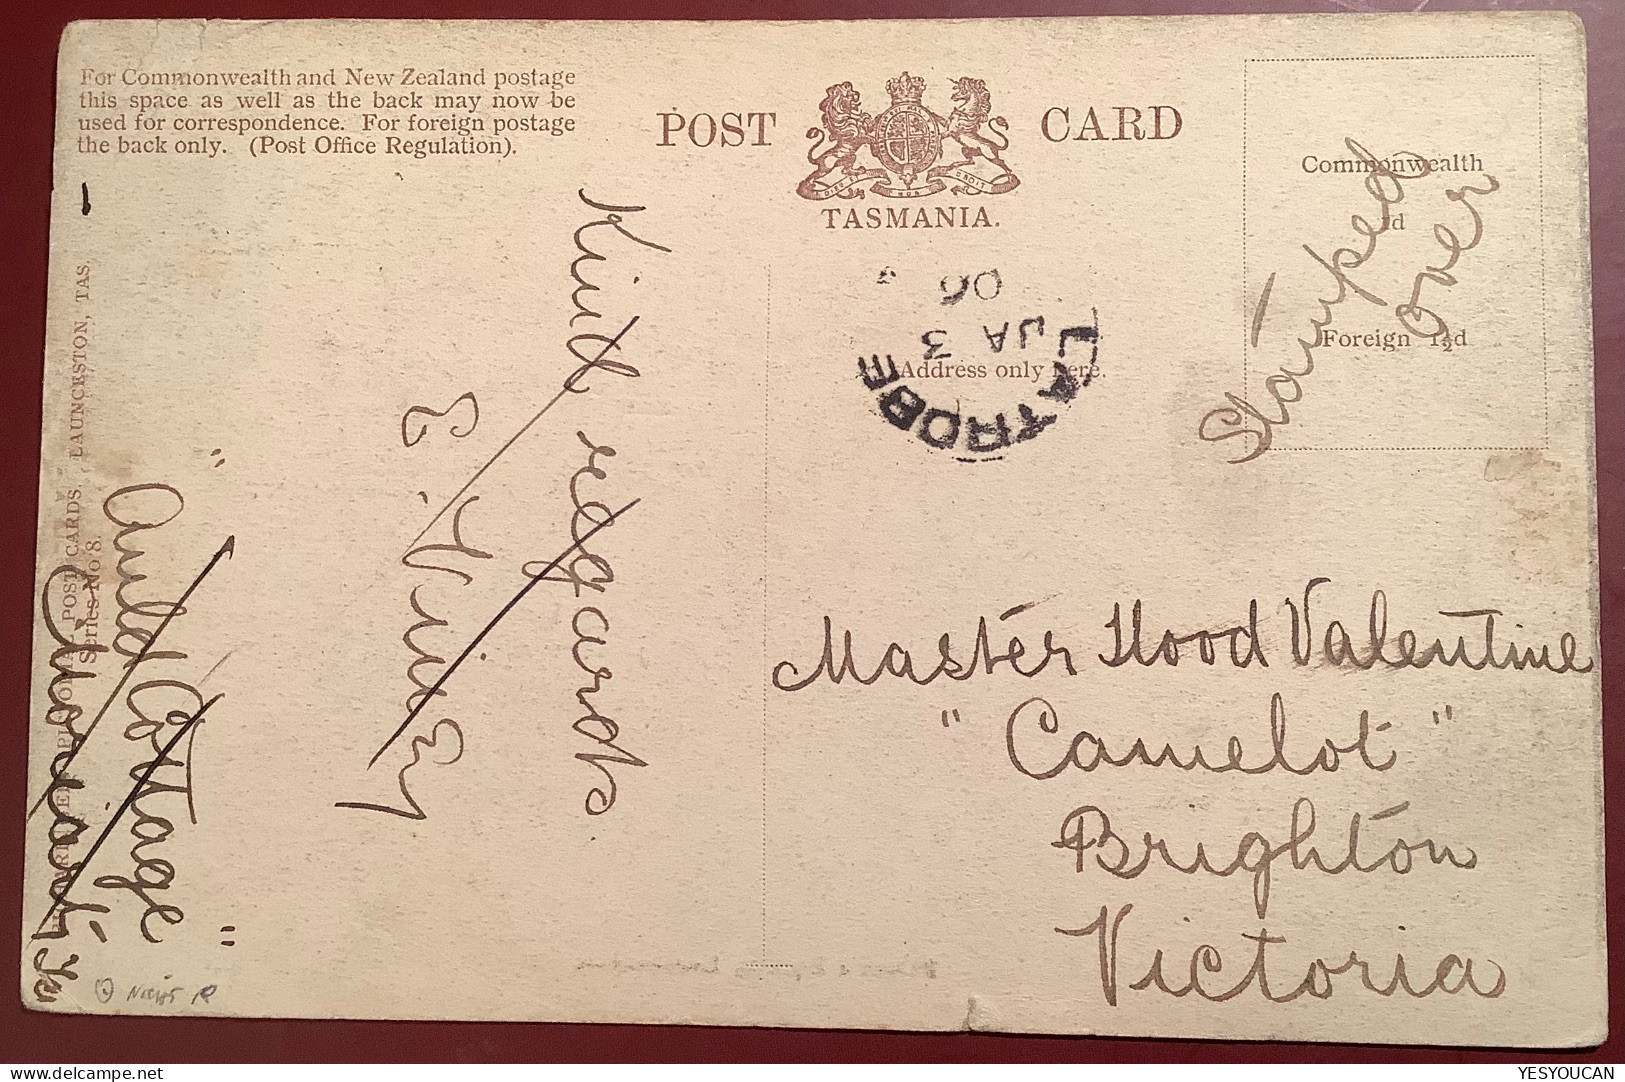 For Commonwealth and New Zealand postage
this space as well as the back may now be
used for correspondence. For foreign postage
the back only. (Post Office Regulation).
POST CARD
DIEU ET MON DROIT
TASMANIA.
Commonwealth
Foreign 1½d
Stamped
over
Address only here.
LATROBE
JA 3
06
Kind regards.
"Auld Cottage"
POST CARDS. LAUNCESTON, TAS.
Series No 8.
Master Hood Valentine
"Camelot"
Brighton
Victoria
YESYOUCAN